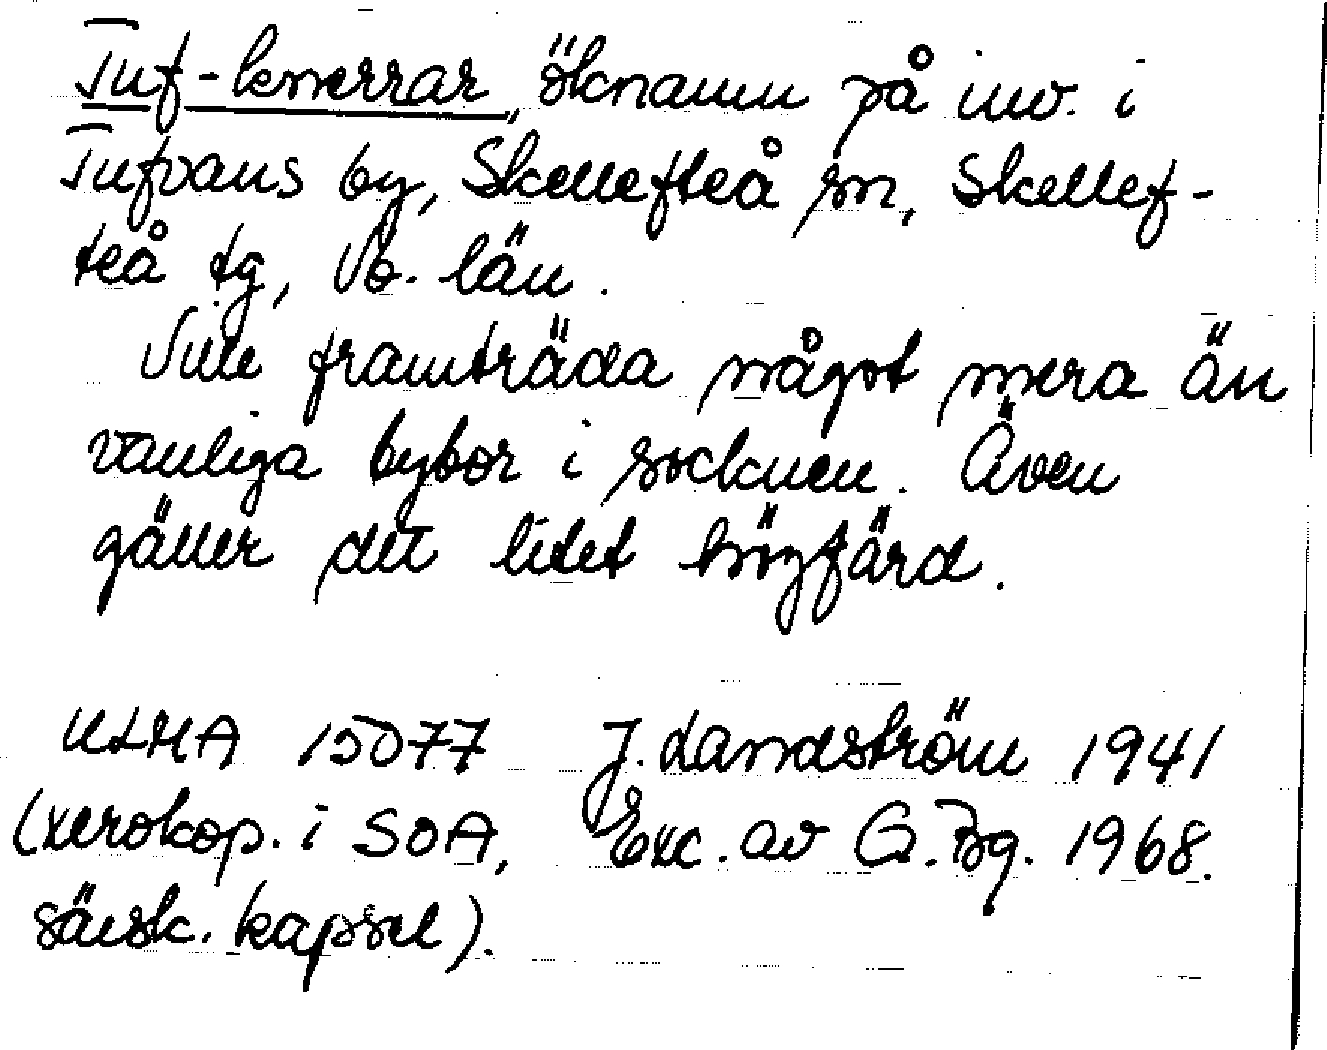 Tuf-knerrar, öknamn på inv. i
Tufvans by, Skellefteå sn, Skellef-
teå tg, Vb. län.
Ville framträda något mera än
vanliga bybor i socknen. Även
gäller det litet högfärd.
ULMA 15077 J. Landström 1941
(xerokop. i SOA, Exc. av G. Bg. 1968.
särsk. kapsel).